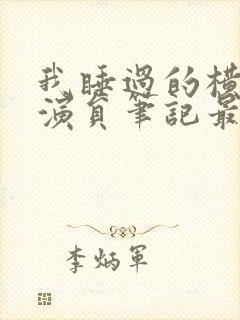 我睡過的橫
演員筆記最
李炳軍